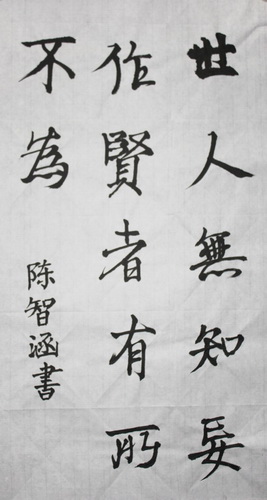 世人無知妄
作賢者有所
不為
陈智涵書